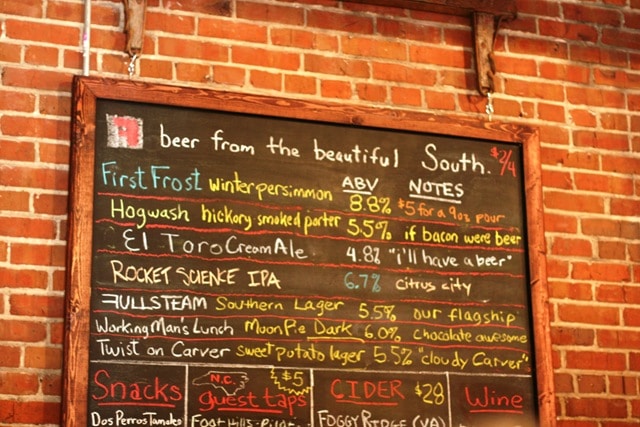 beer from the beautiful South. $2/4
ABV NOTES
First Frost winter persimmon 8.8% $5 for a 9oz pour
Hogwash hickory smoked porter 5.5% if bacon were beer
El Toro Cream Ale 4.8% "i'll have a beer"
ROCKET SCIENCE IPA 6.7% citrus city
FULLSTEAM Southern Lager 5.5% our flagship
Working Man's Lunch MoonPie Dark 6.0% chocolate awesome
Twist on Carver sweet potato lager 5.5% "cloudy Carver"
Snacks N.C. guest taps $5 CIDER $28 Wine
Dos Perros Tamales FOGGY RIDGE (VA)